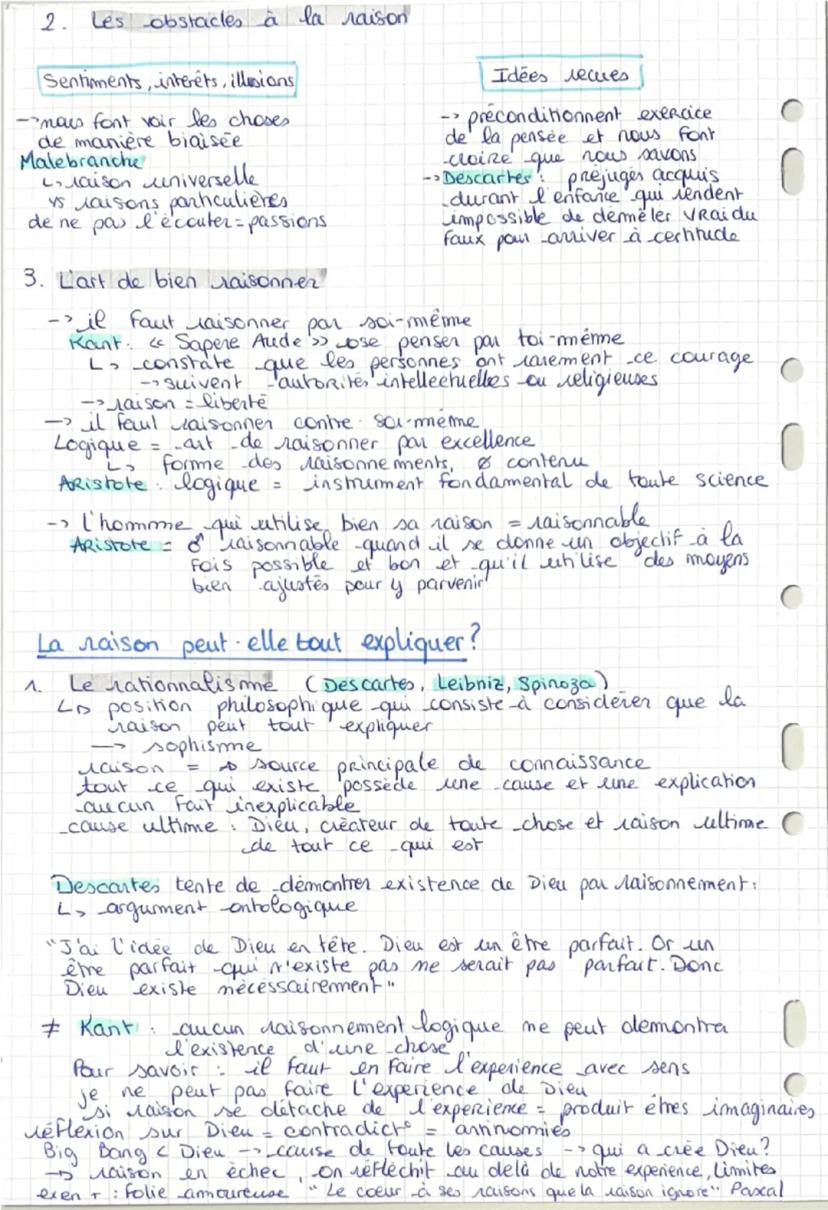 2. Les obstacles à la raison
Sentiments, intérêts, illusions
-> nous font voir les choses
de manière biaisée
Malebranche
↳ raison universelle
vs raisons particulières
de ne pas l'écouter = passions
Idées recues
-> préconditionnent exercice
de la pensée et nous font
croire que nous savons
-> Descartes : préjugés acquis
durant l'enfance qui rendent
impossible de démêler vrai du
faux pour arriver à certitude
3. L'art de bien raisonner
-> il faut raisonner par soi-même
Kant : « Sapere Aude » ose penser par toi-même
↳ constate que les personnes ont rarement ce courage
-> suivent autorités intellectuelles ou religieuses
-> raison = liberté
-> il faut raisonner contre soi-même
Logique = art de raisonner par excellence
↳ forme des raisonnements, ø contenu
Aristote : logique = instrument fondamental de toute science
-> l'homme qui utilise bien sa raison = raisonnable
Aristote = ♂ raisonnable quand il se donne un objectif à la
fois possible et bon et qu'il utilise des moyens
bien ajustés pour y parvenir
La raison peut-elle tout expliquer ?
1. Le rationnalisme (Descartes, Leibniz, Spinoza)
↳ position philosophique qui consiste à considérer que la
raison peut tout expliquer
-> sophisme
raison = source principale de connaissance
tout ce qui existe possède une cause et une explication
aucun fait inexplicable
cause ultime : Dieu, créateur de toute chose et raison ultime
de tout ce qui est
Descartes tente de démontrer existence de Dieu par raisonnement :
↳ argument ontologique
"J'ai l'idée de Dieu en tête. Dieu est un être parfait. Or un
être parfait qui n'existe pas ne serait pas parfait. Donc
Dieu existe nécessairement"
≠ Kant : aucun raisonnement logique ne peut demontra
l'existence d'une chose
Pour savoir : il faut en faire l'experience avec sens
je ne peut pas faire l'experience de Dieu
si raison se détache de l'experience = produit êtres imaginaires
réflexion sur Dieu = contradict° = antinomies
Big Bang < Dieu -> cause de toute les causes -> qui a crée Dieu ?
-> raison en échec, on réfléchit au delà de notre experience, limites
: folie amoureuse "Le coeur a ses raisons que la raison ignore" Pascal